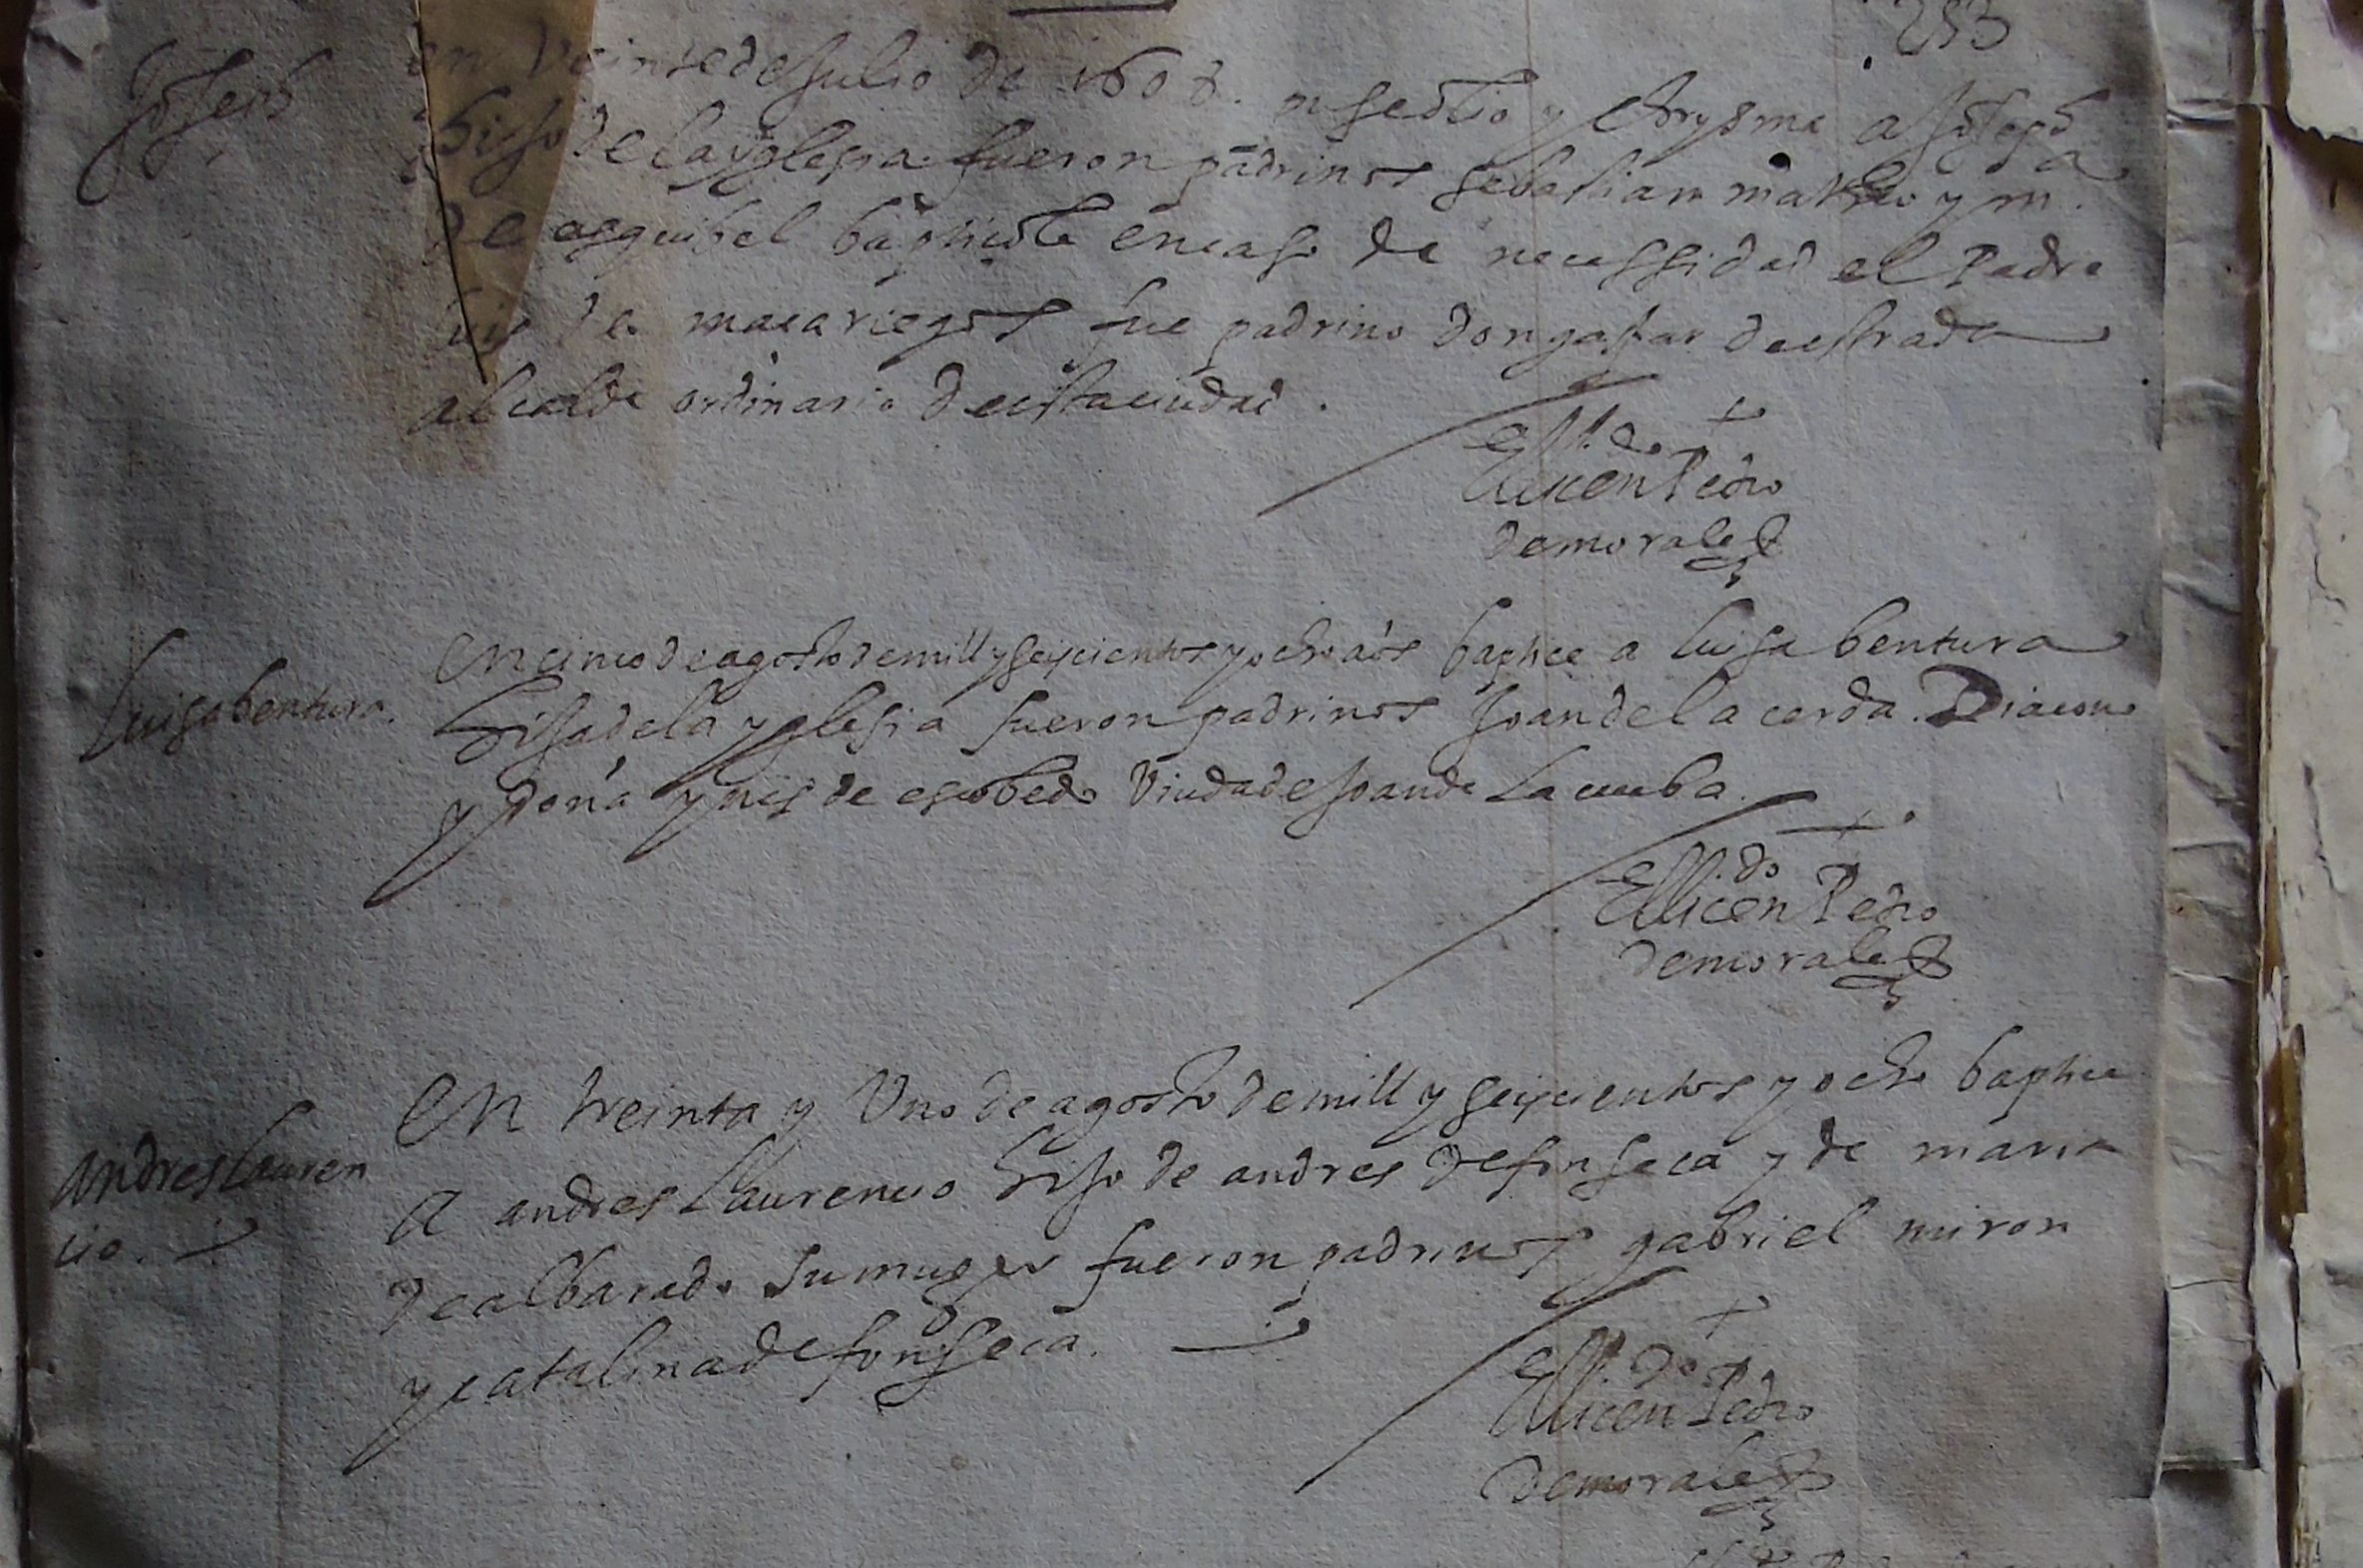 253
Joseph
en Veinte de Julio de 1608. puse olio y Chrysma a Joseph
hijo de la yglesia fueron padrinos sebastian matheo y m.ª
de esquibel baptiçole en caso de necessidad el Padre
luis de maçariegos fue padrino don gaspar de estrada
alcalde ordinario de esta ciudad.
El licen.do Pedro
de morales
Luisa bentura.
En cinco de agosto de mill y seiscientos y ocho años baptice a luisa bentura
hija de la yglesia fueron padrinos Joan de la cerda. Diacono
y doña ynes de escobedo Viuda de Joan de la cueba.
El licen.do Pedro
de morales
andres lauren
cio.
En treinta y Uno de agosto de mill y seiscientos y ocho baptice
A andres laurencio hijo de andres de fonseca y de maria
de albarado su muger fueron padrinos gabriel miron
y catalina de fonseca.
El licen.do Pedro
de morales